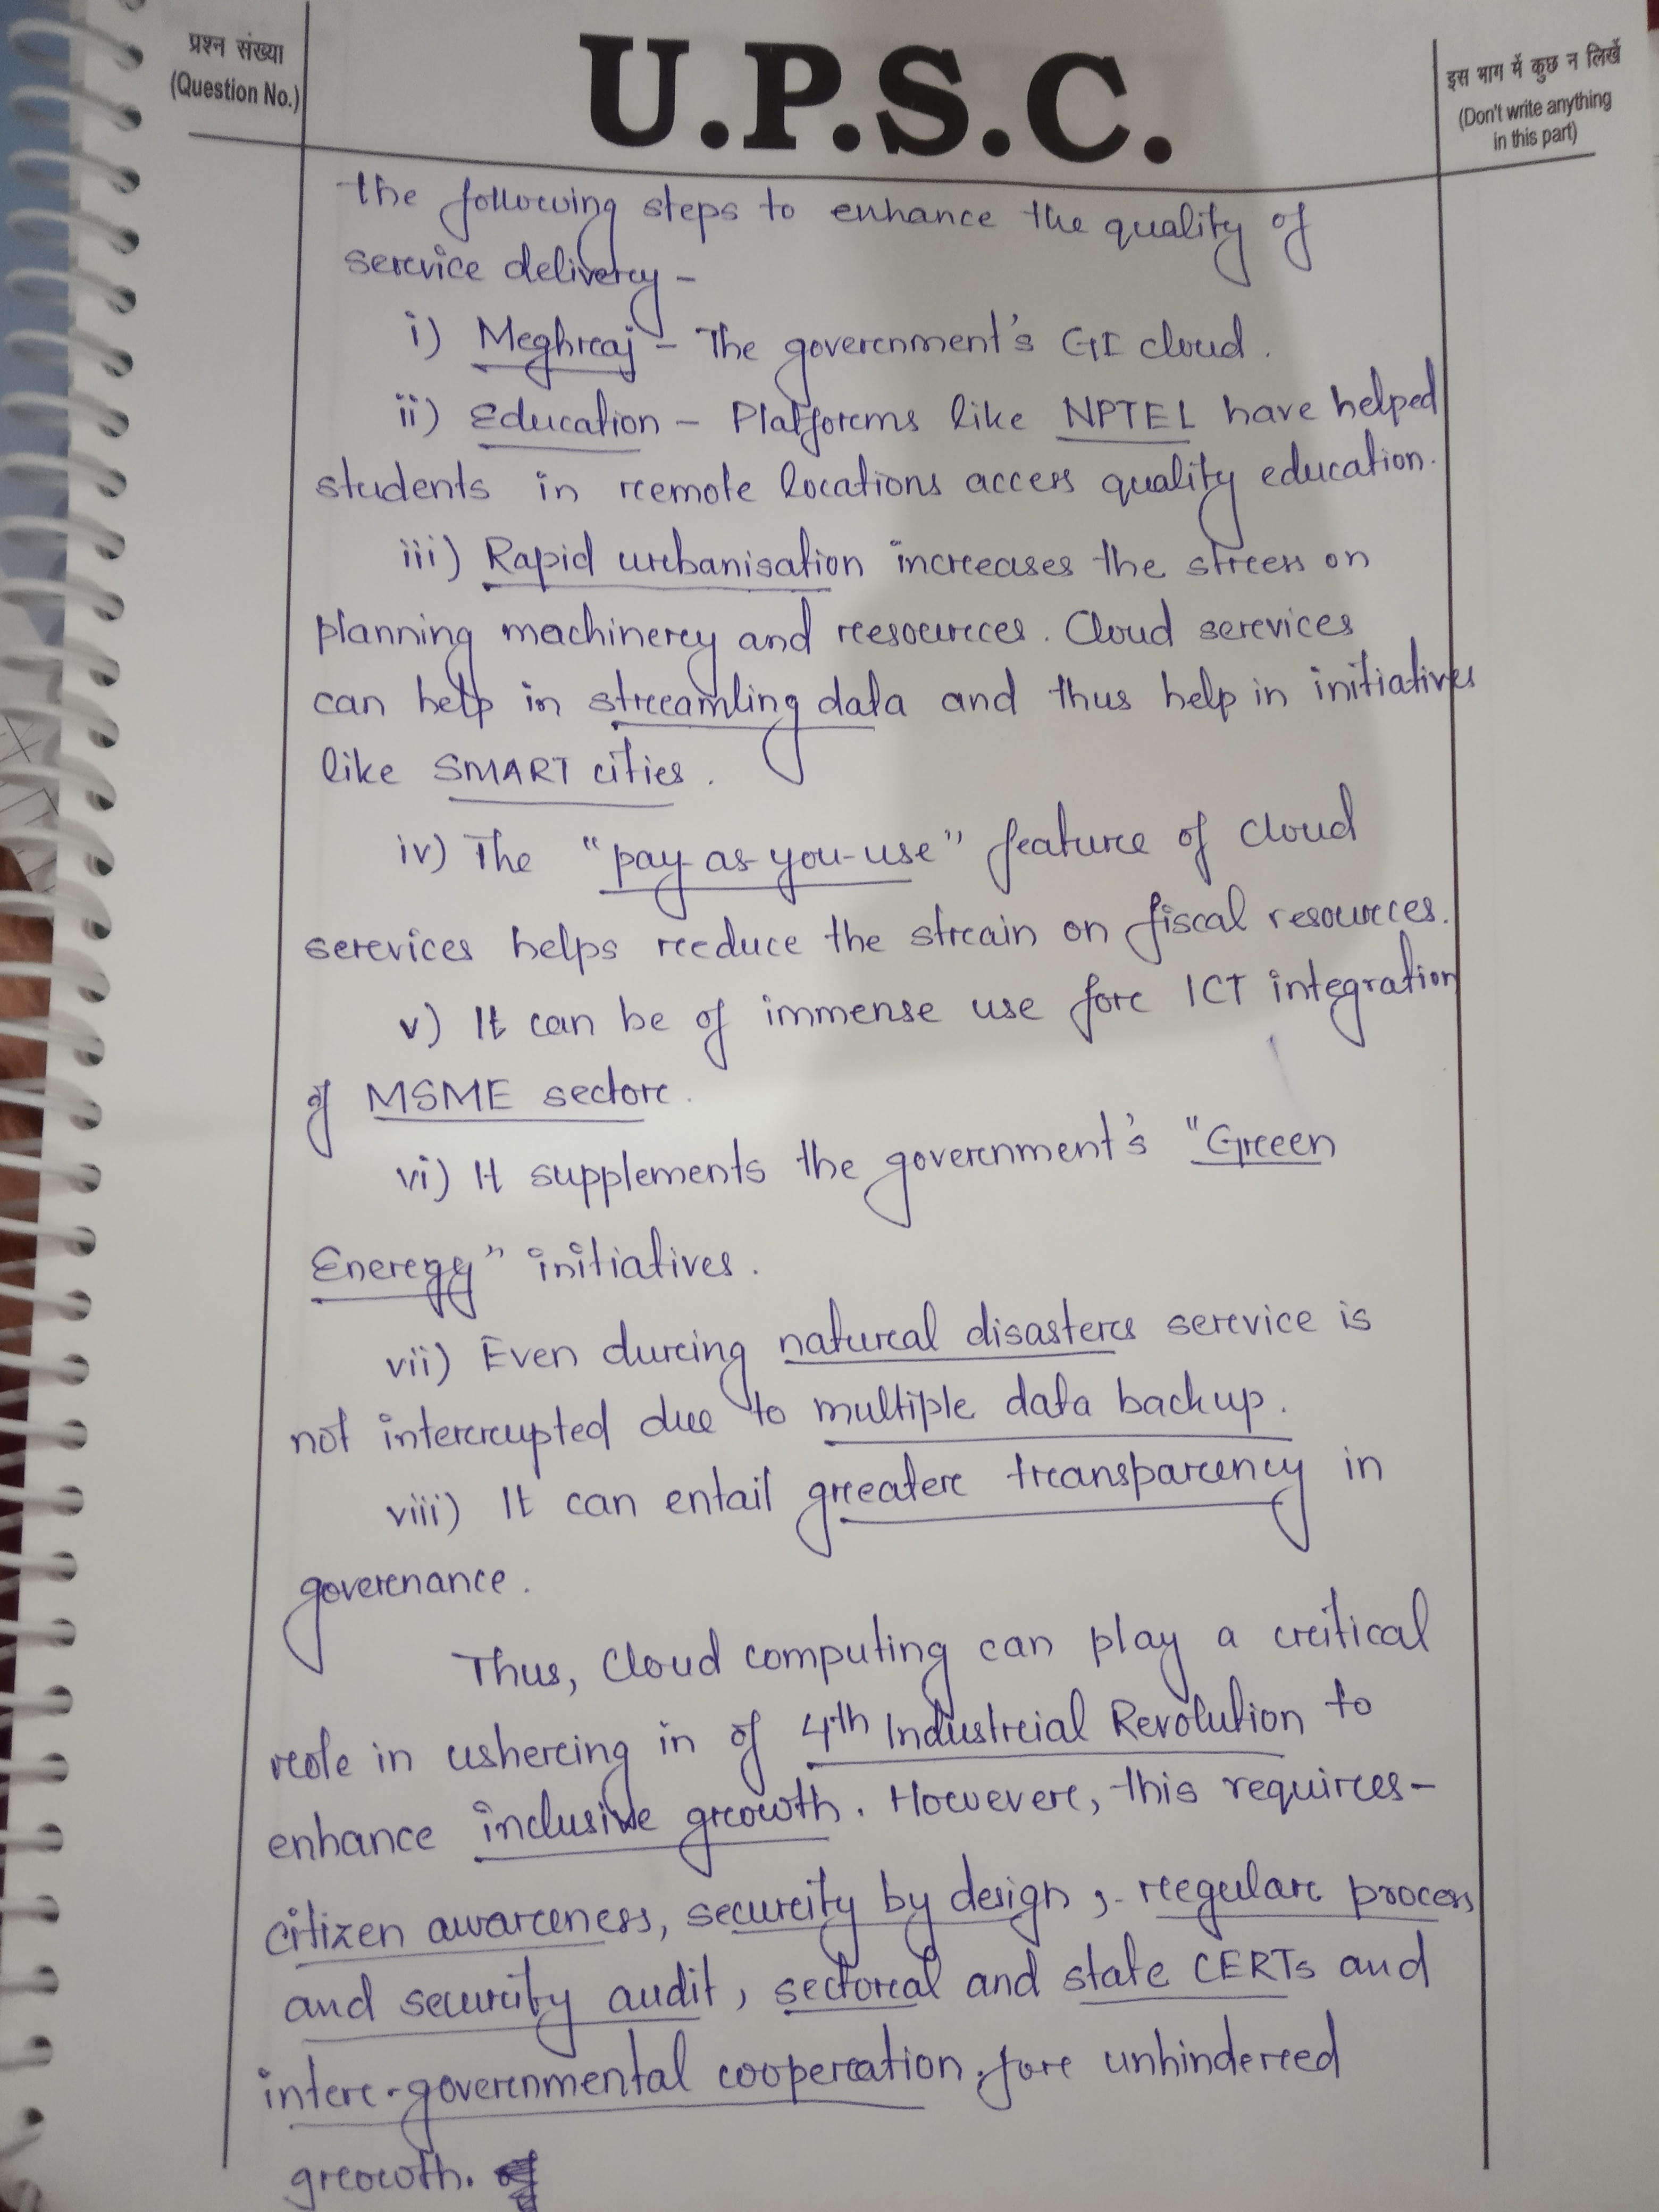 प्रश्न संख्या
(Question No.)
U.P.S.C.
इस भाग में कुछ न लिखें
(Don't write anything
in this part)
the following steps to enhance the quality of
service delivery -
i) Meghraj - The government's GI cloud.
ii) Education - Platforms like NPTEL have helped
students in remote locations access quality education.
iii) Rapid urbanisation increases the stress on
planning machinery and resources. Cloud services
can help in streamling data and thus help in initiatives
like SMART cities.
iv) The "pay-as-you-use" feature of cloud
services helps reduce the strain on fiscal resources.
v) It can be of immense use for ICT integration
of MSME sector.
vi) It supplements the government's "Green
Energy" initiatives.
vii) Even during natural disasters service is
not interrupted due to multiple data backup.
viii) It can entail greater transparency in
governance.
Thus, Cloud computing can play a critical
role in ushering in of 4th Industrial Revolution to
enhance inclusive growth. However, this requires-
citizen awareness, security by design, regular process
and security audit, sectoral and state CERTs and
inter-governmental cooperation for unhindered
growth.